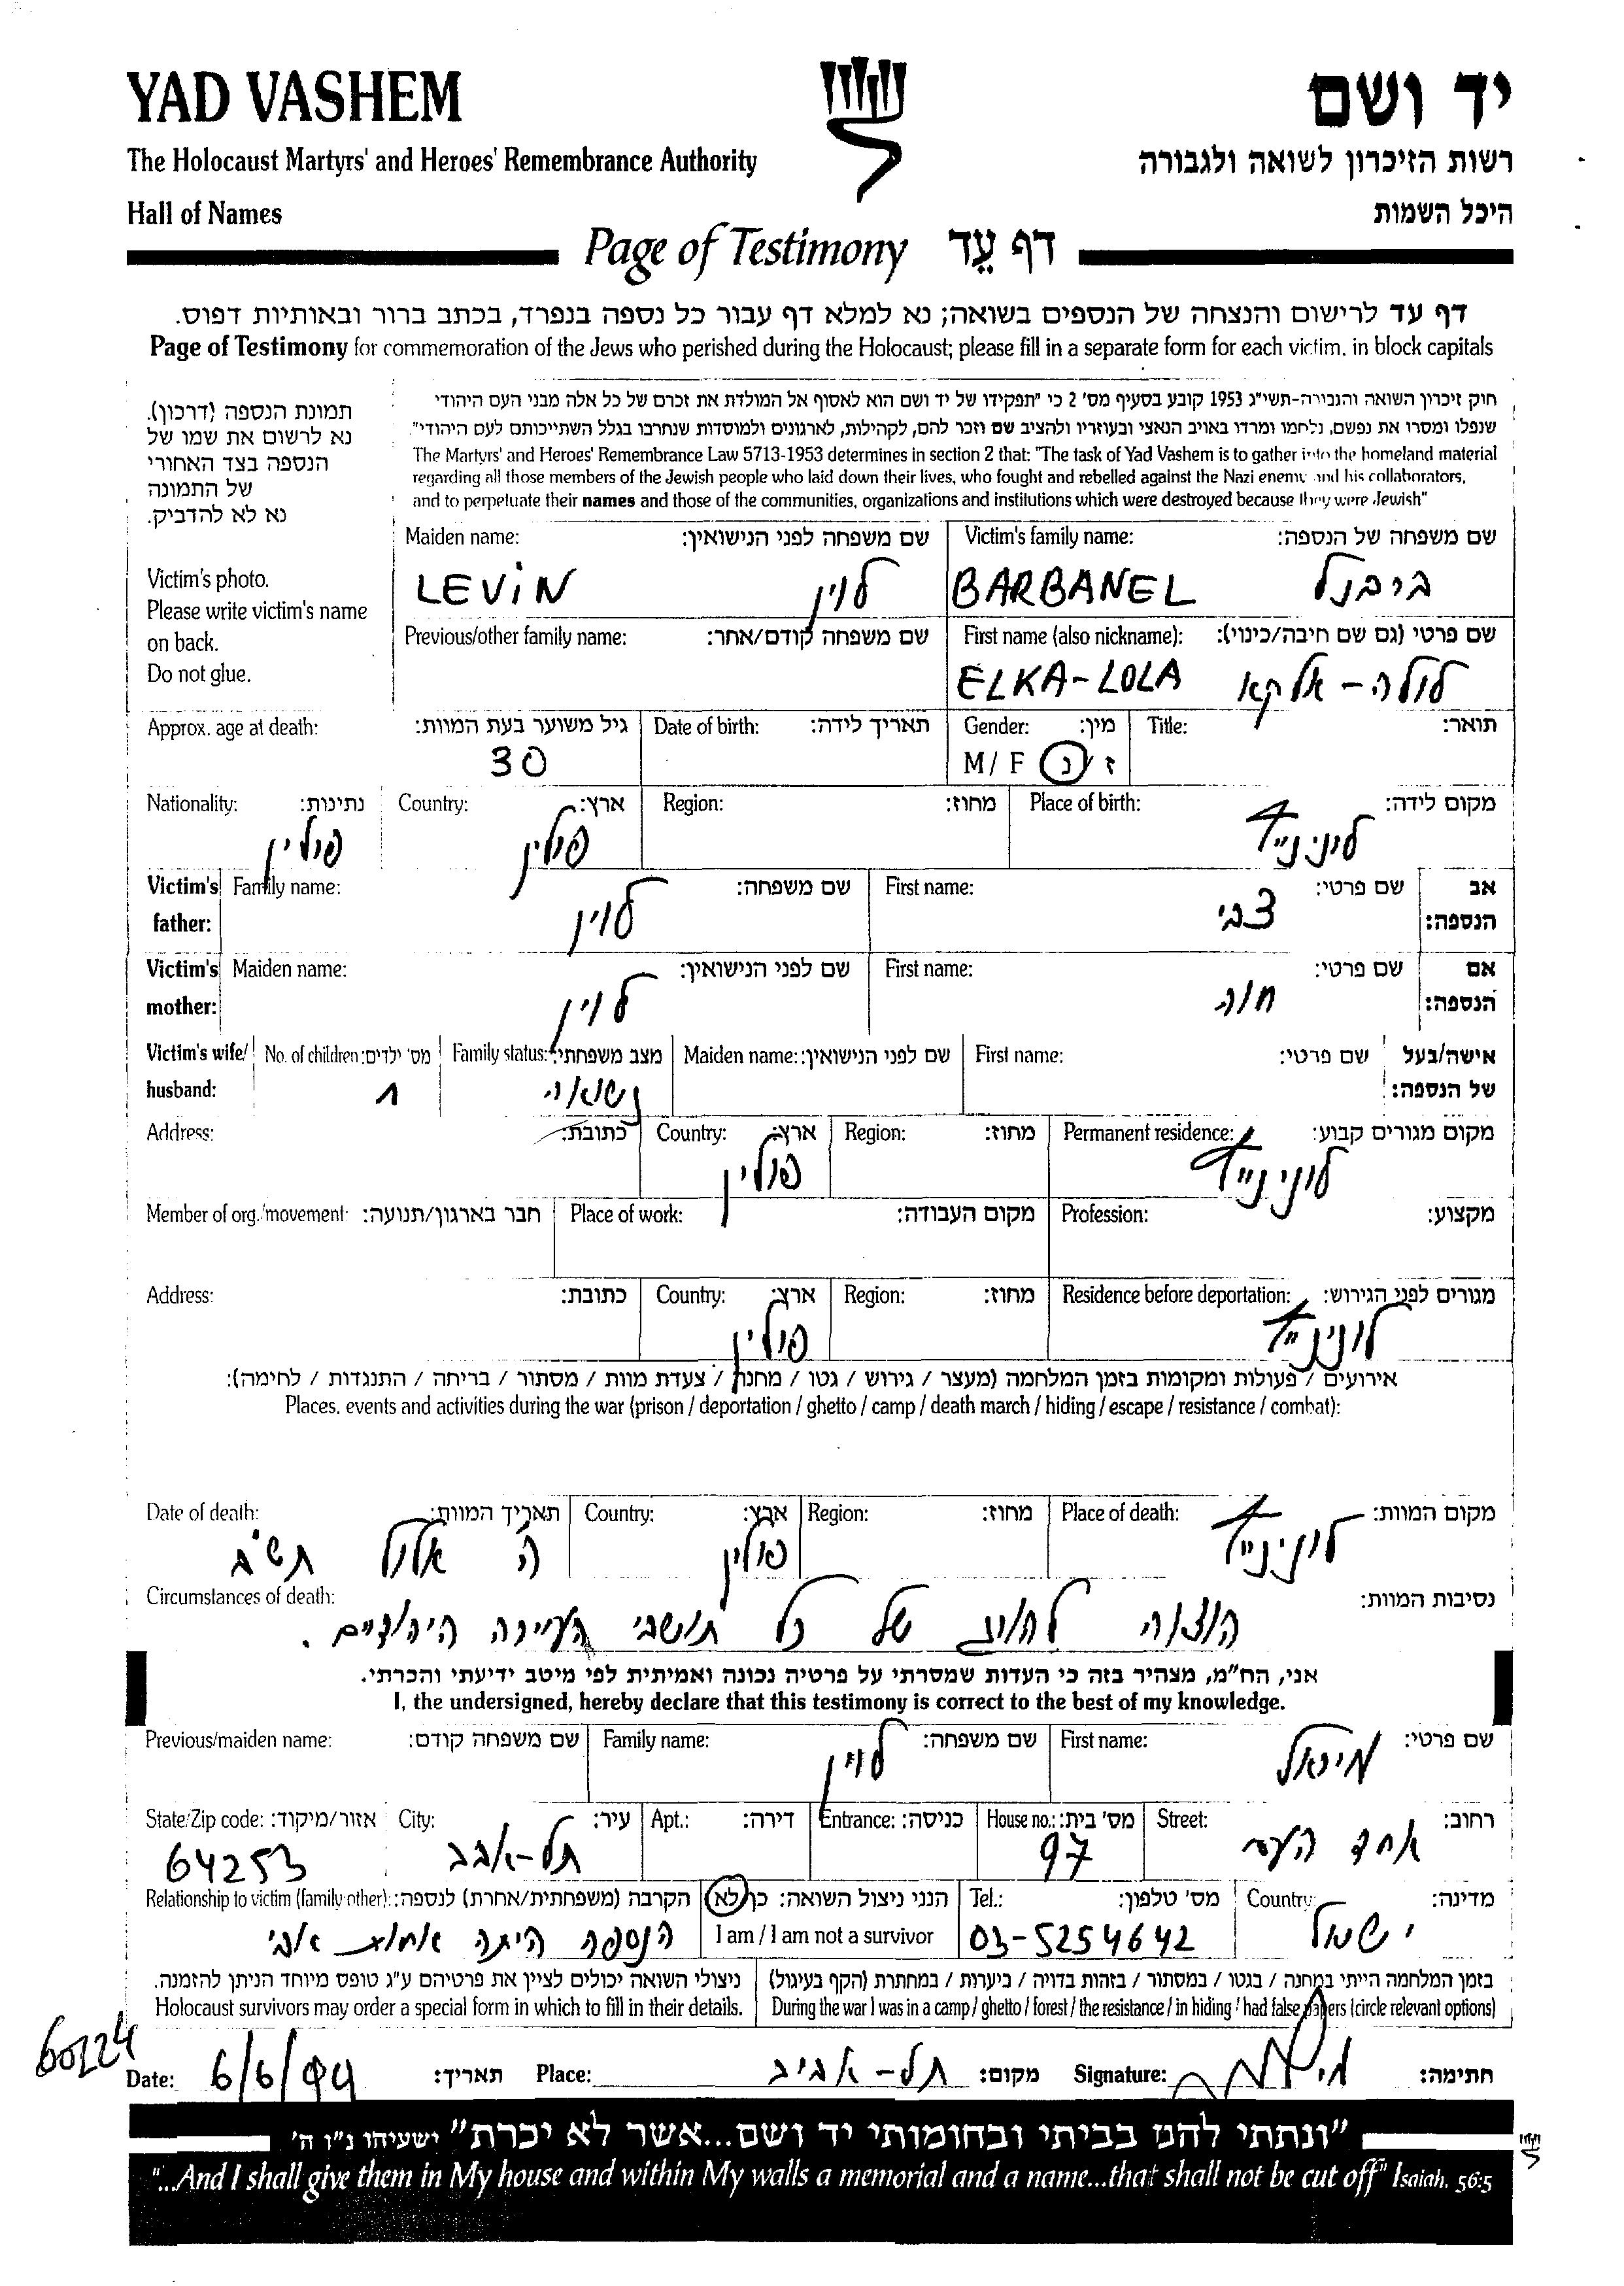 YAD VASHEM
יד ושם
The Holocaust Martyrs' and Heroes' Remembrance Authority
רשות הזיכרון לשואה ולגבורה
Hall of Names
היכל השמות
Page of Testimony דף עֵד
דף עד לרישום והנצחה של הנספים בשואה; נא למלא דף עבור כל נספה בנפרד, בכתב ברור ובאותיות דפוס.
Page of Testimony for commemoration of the Jews who perished during the Holocaust; please fill in a separate form for each victim, in block capitals
חוק זיכרון השואה והגבורה-תשי"ג 1953 קובע בסעיף מס' 2 כי "תפקידו של יד ושם הוא לאסוף אל המולדת את זכרם של כל אלה מבני העם היהודי
שנפלו ומסרו את נפשם, נלחמו ומרדו באויב הנאצי ובעוזריו ולהציב שם וזכר להם, לקהילות, לארגונים ולמוסדות שנחרבו בגלל השתייכותם לעם היהודי"
The Martyrs' and Heroes' Remembrance Law 5713-1953 determines in section 2 that: "The task of Yad Vashem is to gather into the homeland material
regarding all those members of the Jewish people who laid down their lives, who fought and rebelled against the Nazi enemy and his collaborators,
and to perpetuate their names and those of the communities, organizations and institutions which were destroyed because they were Jewish"
תמונת הנספה (דרכון).
נא לרשום את שמו של
הנספה בצד האחורי
של התמונה
נא לא להדביק.
Victim's photo.
Please write victim's name
on back.
Do not glue.
Victim's family name: שם משפחה של הנספה:
BARBANEL ברבנל
Maiden name: שם משפחה לפני הנישואין:
LEVIN לוין
First name (also nickname): שם פרטי (גם שם חיבה/כינוי):
ELKA-LOLA לולה - אלקא
Previous/other family name: שם משפחה קודם/אחר:
Title: תואר:
Gender: מין:
M / F ז / נ
Date of birth: תאריך לידה:
Approx. age at death: גיל משוער בעת המוות:
30
Place of birth: מקום לידה:
לונינייץ
Region: מחוז:
Country: ארץ:
פולין
Nationality: נתינות:
פולין
Victim's father: אב הנספה:
First name: שם פרטי:
צבי
Family name: שם משפחה:
לוין
Victim's mother: אם הנספה:
First name: שם פרטי:
חוה
Maiden name: שם לפני הנישואין:
לוין
Victim's wife/ husband: אישה/בעל של הנספה:
First name: שם פרטי:
Maiden name: שם לפני הנישואין:
Family status: מצב משפחתי:
נשואה
No. of children: מס' ילדים:
1
Permanent residence: מקום מגורים קבוע:
לונינייץ
Region: מחוז:
Country: ארץ:
פולין
Address: כתובת:
Profession: מקצוע:
Place of work: מקום העבודה:
Member of org./movement: חבר בארגון/תנועה:
Residence before deportation: מגורים לפני הגירוש:
לונינייץ
Region: מחוז:
Country: ארץ:
פולין
Address: כתובת:
אירועים / פעולות ומקומות בזמן המלחמה (מעצר / גירוש / גטו / מחנה / צעדת מוות / מסתור / בריחה / התנגדות / לחימה):
Places, events and activities during the war (prison / deportation / ghetto / camp / death march / hiding / escape / resistance / combat):
Place of death: מקום המוות:
לונינייץ
Region: מחוז:
Country: ארץ:
פולין
Date of death: תאריך המוות:
ה' אלול תש"ב
Circumstances of death: נסיבות המוות:
הוצאה להורג של כל תושבי העיירה היהודיים.
אני, הח"מ, מצהיר בזה כי העדות שמסרתי על פרטיה נכונה ואמיתית לפי מיטב ידיעתי והכרתי.
I, the undersigned, hereby declare that this testimony is correct to the best of my knowledge.
First name: שם פרטי:
מיכאל
Family name: שם משפחה:
לוין
Previous/maiden name: שם משפחה קודם:
Street: רחוב:
אחד העם
House no.: מס' בית:
97
Entrance: כניסה:
Apt.: דירה:
City: עיר:
תל-אביב
State/Zip code: אזור/מיקוד:
64253
Country: מדינה:
ישראל
Tel.: מס' טלפון:
03-5254642
הנני ניצול השואה: כן / לא
I am / I am not a survivor
Relationship to victim (family/other): הקרבה (משפחתית/אחרת) לנספה:
הנספה היתה אחות אבי
בזמן המלחמה הייתי במחנה / בגטו / במסתור / בזהות בדויה / ביערות / במחתרת (הקף בעיגול)
During the war I was in a camp / ghetto / forest / the resistance / in hiding / had false papers (circle relevant options)
ניצולי השואה יכולים לציין את פרטיהם ע"ג טופס מיוחד הניתן להזמנה.
Holocaust survivors may order a special form in which to fill in their details.
60224
Date: 6/6/94 תאריך: Place: תל-אביב מקום: Signature: חתימה:
"ונתתי להם בביתי ובחומותי יד ושם...אשר לא יכרת" ישעיהו נ"ו ה'
"...And I shall give them in My house and within My walls a memorial and a name...that shall not be cut off" Isaiah, 56:5